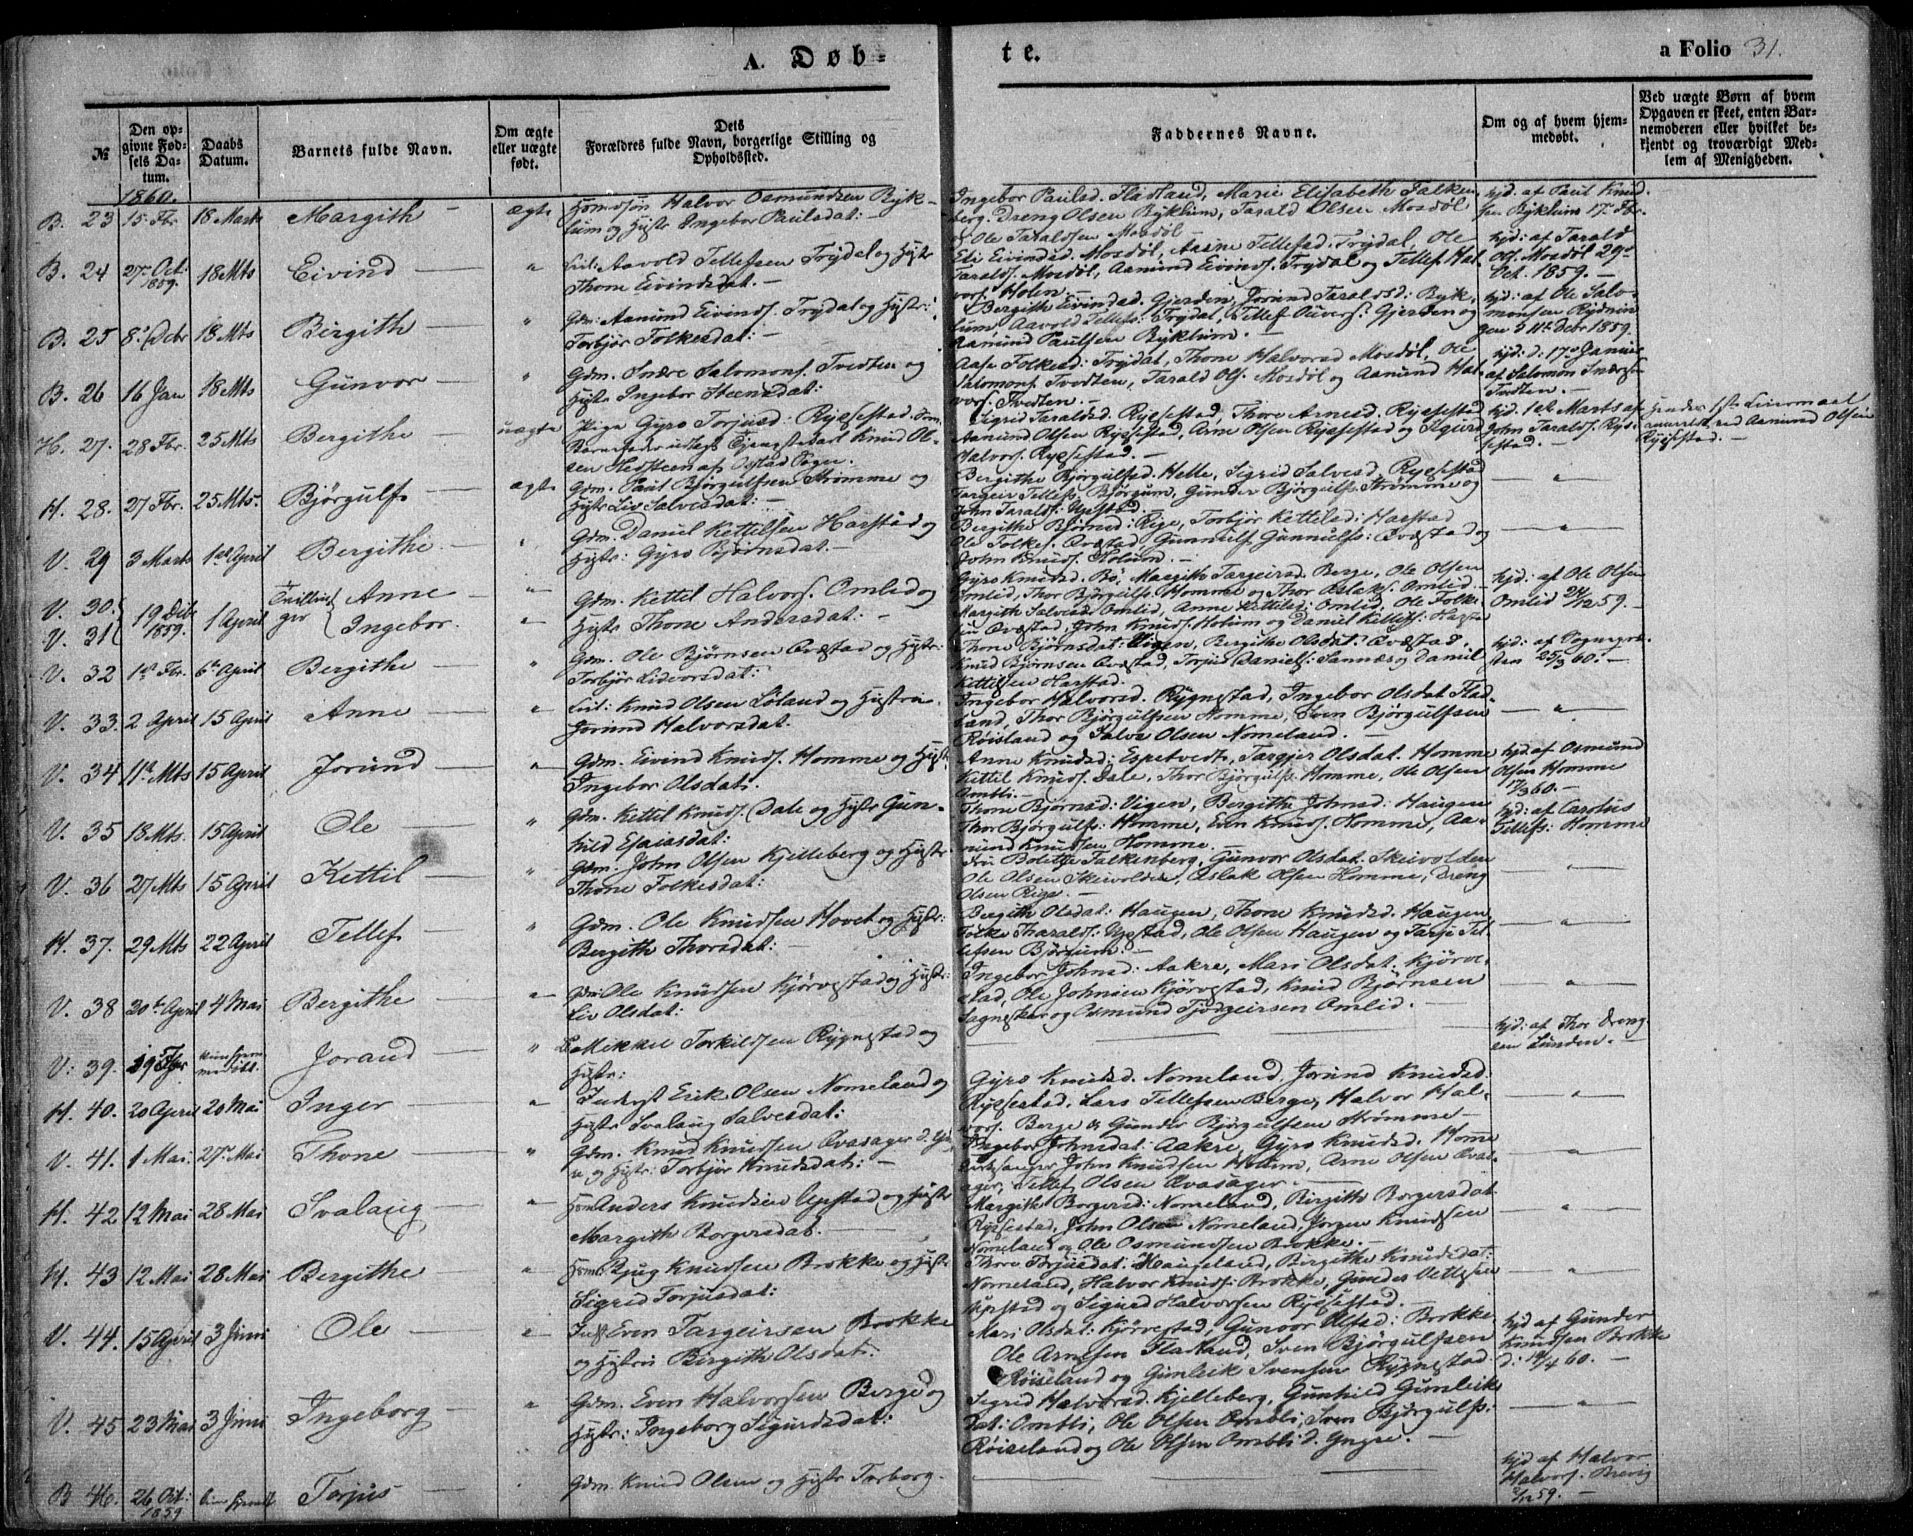 A. Døb-
te.
a Folio 31.
№
Den op-
givne Fød-
sels Da-
tum.
Daabs
Datum.
Barnets fulde Navn.
Om ægte
eller uægte
født.
Dets
Forældres fulde Navn, borgerlige Stilling og
Opholdssted.
Faddernes Navne.
Om og af hvem hjem-
medøbt.
Ved uægte Børn af hvem
Opgaven er skeet, enten Bar-
nemoderen eller hvilket be-
kjendt og troværdigt Med-
lem af Menigheden.
1860.
B. 23 15 Fbr. 18 Marts Margith ægte
Halvor Osmundsen Byk-
lum og Hustr Ingebor Paulsdat:
Ingebor Paulsd. Fladland, Marie Elisabeth Falken-
berg. Dreng Olsen Byklum, Tarald Olsen Mosdøl
og Ole Taraldsen Mosdøl
hjd. af Paul Knud-
sen Byklum 17 Fbr.
B. 24 27 Oct: 1859. 18 Mts Eivind "
Aavold Tellefsen Trydal og Hustr
Thone Eivindsdat.
Eli Eivindsd. Mosdøl, Aasne Tellefsd. Trydal, Ole
Taralds. Mosdøl, Aamund Eivinds. Trydal og Tellef Hal-
vors. Holen.
hjd: af Tarald
Ols. Mosdøl 29de
Oct. 1859.
B. 25 8de Decbr 18 Mts Birgith "
Gdm: Aamund Eivinds. Trydal og Hustr:
Torbjør Folkesdat:
Bergith Eivindsd. Gjerden, Jorund Taraldsd: Byk-
lum, Aavold Tellefs: Trydal, Tellef Gjerden og
Aamund Paulsen Byklum.
hjd: af Ole Salo-
monsen Rydnin-
gen 11te Decbr 1859.
B. 26 16 Jan 18 Mts Gunvor "
Gdm. Salomons. Tvedten og
Hustr Ingebor Steensdat:
Aase Folkesd: Trydal, Thone Halvorsd Mosdøl, Ole
Salomons. Tvedten, Tarald Ols. Mosdøl og Aamund Hal-
vors. Tvedten.
hjd: d: 17de Januar
af Salomon
Tvedten.
H. 27. 28 Fbr. 25 Mts Bergithe uægte
Pige Gyro Torjusd: Rysestad.
Barnefader udlagt Knud Ol-
sen af Sogn.
Sigrid Taraldsd. Rysestad, Thore Arnesd. Rysestad
Aamund Olsen Rysestad, Arne Olsen Rysestad og Sigurd
Halvors. Rysestad.
hjd. 1ste Marts af
John Taralds. Rys-
sestad.
hendes 1ste Leiermaal
anmeldt ved Aamund Olsen
Rysestad.
H. 28. 27 Fbr. 25 Mts. Bjørgulf ægte
Gdm. Paul Bjørgulfsen Strømme og
Hustr Liv Salvesdat:
Bergithe Bjørgulfsd. Helle, Sigrid Salvesd. Rysestad
Targeir Tellefs. Bjørgum, Gunder Bjørgulfs. Strømme og
John Taralds: Upstad.
"
V. 29 3 Marts 1ste April Bergithe "
Gdm. Daniel Kettilsen Harstad og
Hustr: Gyro Bjørnsdat.
Bergithe Bjørnsd: Rige, Torbjør Kettilsd: Harstad
Ole Folkes. Qvæstad, Gunnulf Gunnulfs: Qvæstad og
John Knuds. Holum.
"
V. 30. V. 31 19 Deb 1859. 1 April Tvillin-
ger Anne
Ingebor. "
Gdm. Kettil Halvors. Omlid og
Hustr Thone Andersdat:
Gyro Knudsd. Bø, Margith Targeirsd. Berge, Ole Olsen
Omlid, Thor Bjørgulfs. Homme og Thor Aslaks. Omlid.
Margith Salvesd. Omlid, Anne Kettilsd: Omlid, Ole Folke-
sen Qvæstad, John Knuds. Holum og Daniel Kettils: Harstad
hjd: af Ole Olsen
Omlid 24/12 59.
V. 32 1ste Fbr. 6te April Bergithe "
Gdm. Ole Bjørnsen Qvæstad og Hustr:
Torbjør Lidvorsdat:
Thone Bjørnsdat: Vigen, Bergithe Olsdat: Qvæstad,
Knud Bjørnsen Qvæstad, Torjus Daniels: Sannæs og Daniel
Kettilsen Harstad.
hjd: af Sognepræ-
sten 25/3 60.
V. 33. 2 April 15 April Anne "
Knud Olsen Løland og Hustru
Jorund Halvorsdat.
Ingebor Halvorsd. Rygnestad, Ingebor Olsdat Flad-
land, Thor Bjørgulfsen Homme, Sven Bjørgulfsen
Røisland og Salve Olsen Nomeland.
"
V. 34 11te Mts 15 April Jorund "
Gdm. Eivind Knuds. Homme og Hustr
Ingebor Olsdat.
Anne Knudsd: Espetvedt, Targjer Olsdat. Homme
Kettil Knuds. Dale, Thor Bjørgulfs. Homme, Ole Olsen
Ombli.
hjd. af Osmund
Olsen Homme
17/3 60.
V. 35 18 Mts. 15 April Ole "
Gdm. Kettil Knuds. Dale og Hustr Gun-
hild Esaiasdat:
Thone Bjørnsd: Vigen, Bergithe Johnsd: Haugen
Thor Bjørgulfs: Homme, Even Knuds. Homme, Aa-
mund Knudsen Homme.
hjd: af Carolus
Tellefs: Homme
V. 36 27 Mts 15 April Kettil "
Gdm. John Olsen Kjelleberg og Hustr.
Thone Folkesdat:
Fru Bolette Falkenberg, Gunvor Olsdat. Skeivolden
Ole Olsen Skeivolden, Aslak Olsen Homme, Dreng
Olsen Rige.
"
H. 37. 29 Mts 22 April Tellef "
Gdm. Ole Knudsen Hovet og Hustr:
Bergith Thorsdat:
Bergith Olsdat: Haugen, Thone Knudsd. Haugen,
Folke Tharalds: Upstad, Ole Olsen Haugen og Tarje Tel-
lefsen Bjørgum.
"
V. 38 20de April 4 Mai Bergithe "
Gdm: Ole Knudsen Kjørvestad og Hustr:
Liv Olsdat:
Ingebor Johnsd: Aakre, Mari Olsdat. Kjørve-
stad, Ole Johnsen Kjørvestad, Knud Bjørnsen
Sagneskar og Osmund Tjøgeirsen Omlid.
"
V: 39. 19 Fbr kun hjem-
medøbt. Jorand "
Mikkel Torkildsen Rygnestad og
Hustr:
hjd: af Thor Dreng-
sen Lunden.
H. 40. 20 April 20 Mai Inger "
Inderst Erik Olsen Nomeland og
Hustr Svalaug Salvesdat:
Gyro Knudsd. Nomeland, Jorund Knudsd:
Rysestad. Lars Tellefsen Berge, Halvor Hal-
vors. Berge & Gunder Bjørgulfsen Strømme
"
V. 41. 1 Mai. 27de Mai Thone "
Gdm. Knud Knudsen Qvasager d.
og Hustr: Torbjør Knudsdat:
Ingebor Johnsdat: Aakre, Gyro Knudsd. Homme
Kirkesanger John Knudsen Holum, Arne Olsen Qvas-
ager, Tellef Olsen Qvasager.
"
H. 42 12 Mai 28 Mai Svalaug "
Anders Knudsen Upstad og Hustr
Margith Borgersdat.
Margith Borgersd: Nomeland, Birgith Borgersdat
Rysestad, John Olsen Nomeland, Jørgen Knudsen
Nomeland og Ole Osmundsen Brokke.
"
H. 43 12 Mai 28 Mai Bergithe "
Bjug Knudsen Brokke og Hustr
Sigrid Torjusdat:
Thore Torjusdat: Haugeland, Birgithe Knudsdat:
Nomeland, Halvor Knuds: Brokke, Gunder
Upstad og Sigurd Halvorsen Rysestad.
"
V. 44. 15 April 3 Juni Ole "
Inst Even Targeirsen Brokke
og Hustru Birgith Olsdat:
Mari Olsdat: Kjørvestad, Gunvor Olsd: Brokke,
Ole Arnesen Fladland, Sven Bjørgulfsen
Røiseland og Gunleik Svensen Rygnestad
hjd af Gunder
Knudsen Brokke
d: 19/4 60.
V. 45 23 Mai 3 Juni Ingeborg "
Gdm. Even Halvorsen Berge og
Hustr: Ingeborg Sigurdsdat:
Sigrid Halvorsd. Kjelleberg, Gunhild Gunleiks-
dat: Ombli, Ole Olsen Ombli, Sven Bjørgulfs:
Røiseland og Ole Olsen Ombli d. Yngre.
"
B 46. 26 Oct: 1859 Torjus
Gdm. Knud Olsen og Hustr Torborg.
hjd af Halvor
Halvors. Breivig
59.